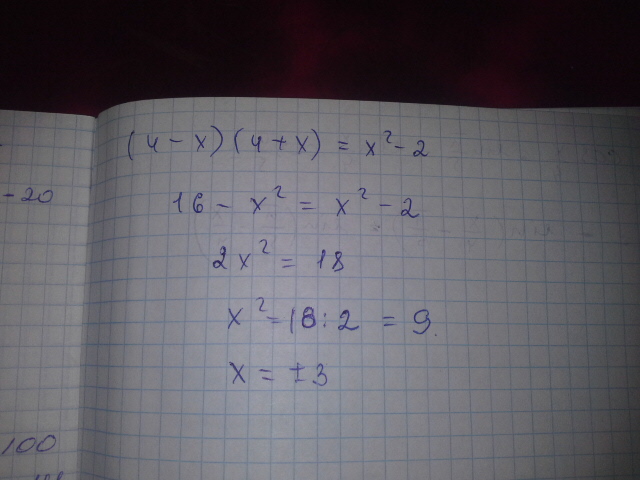 (4-x)(4+x) = x²-2
-20
16 - x² = x² - 2
2x² = 18
x² = 18:2 = 9.
x = ±3
100